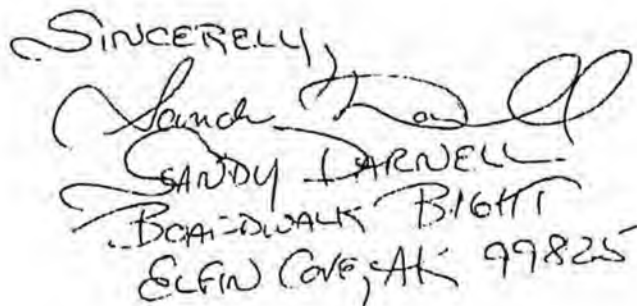 SINCERELY,
Sandy Darnell
SANDY DARNELL
BOARDWALK BIGHT
ELFIN COVE, AK 99825